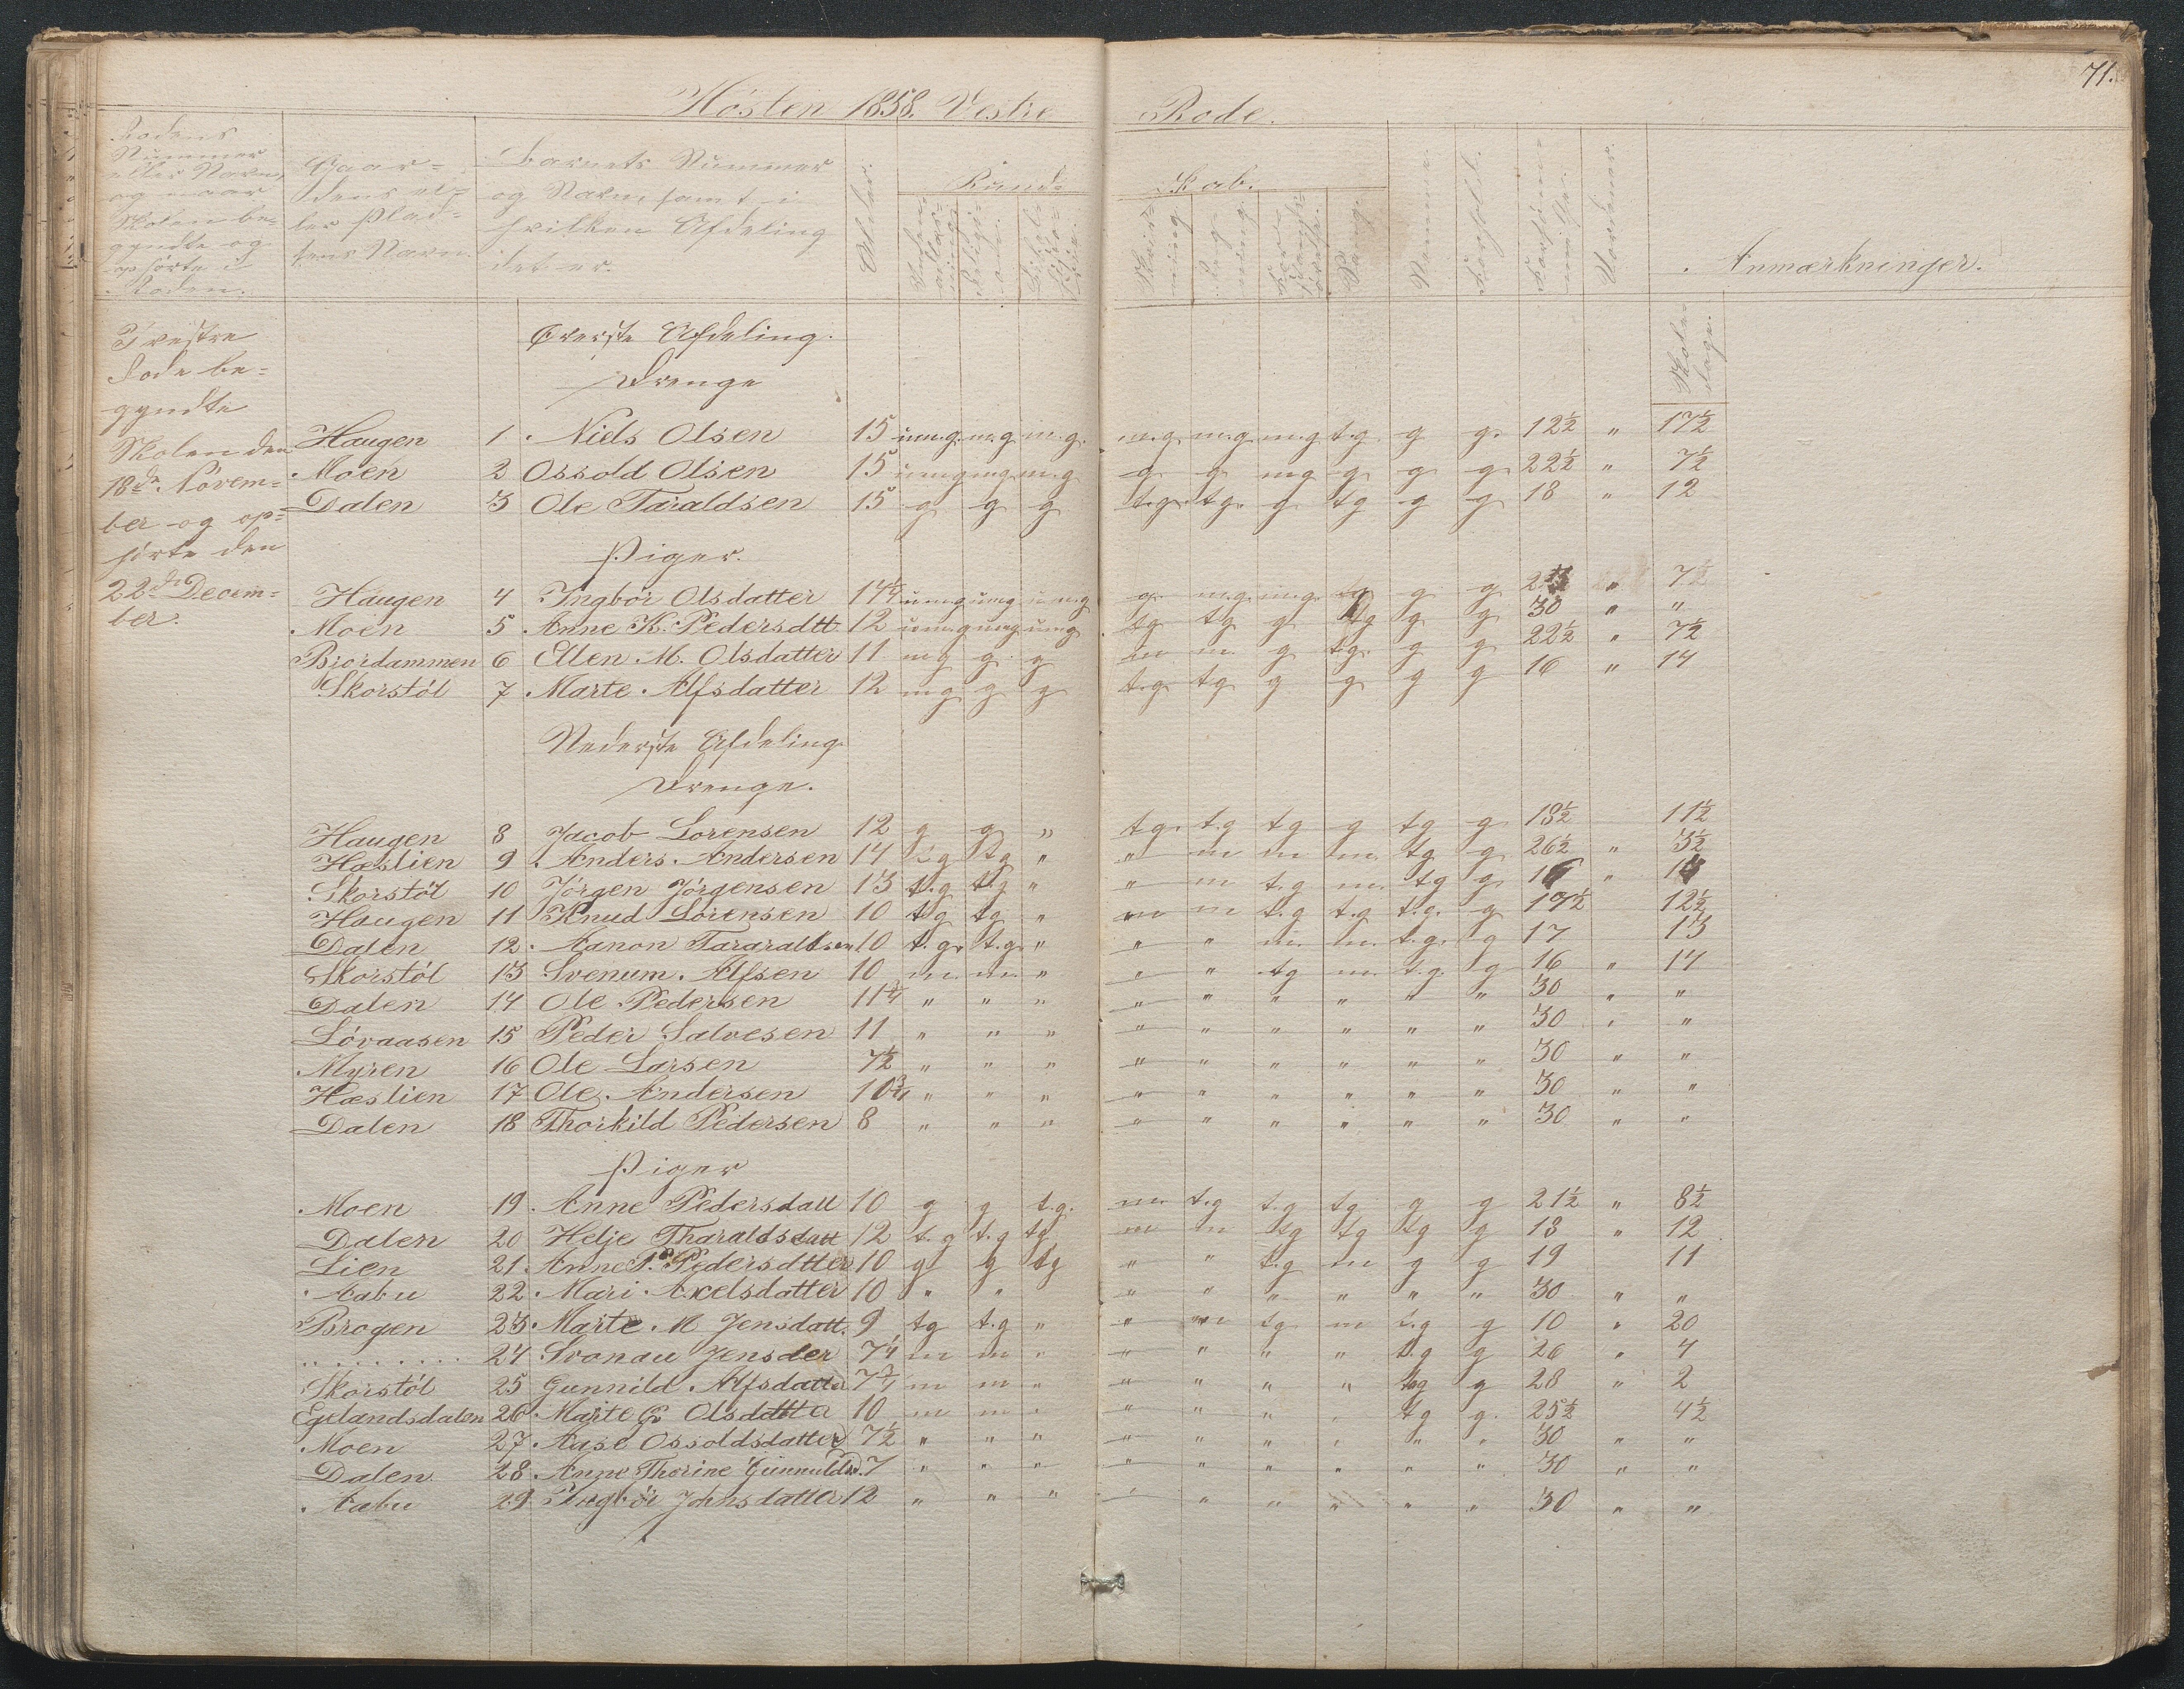 71.
Hösten 1858. Vestre Rode.
Rodens Nummer eller Navn, og naar Skolen begyndte og ophörte i Roden.
Gaardens eller Pladsens Navn.
Barnets Nummer og Navn, samt i hvilken Afdeling det er.
Alder.
Kundskab.
Religion.
Skrivning.
Regning.
Sang.
Nemme.
Forhold.
Forsömmelser.
Anmærkninger.
Skoledage.
I vestre
Rode be=
gyndte
Skolen den
18de Novem=
ber og op=
hörte den
22de Decem=
ber.
Överste Afdeling.
Drenge
Haugen 1 Niels Olsen 15 u.m.g. m.g. m.g. m.g. m.g. m.g. t.g. g g. 12½ " 17½
Moen 2 Ossold Olsen 15 u.m.g m.g m.g g. g. mg g. g g 22½ " 7½
Dalen 3 Ole Taraldsen 15 g g g t.g. tg. g. tg g g 18 " 12
Piger.
Haugen 4 Ingbör Olsdatter 14¼ u.m.g u.m.g u.m.g g. m.g. m.g. tg g g " 7½
Moen 5 Anne K. Pedersdtt. 12 u.m.g umg umg tg tg g tg g g 30 " "
Brordammen 6 Ellen M. Olsdatter 11 mg g g m m g t.g. g g 22½ " 7½
Skorstöl 7 Marte Alfsdatter 12 mg g g t.g tg g g g g 16 " 14
Nederste Afdeling
Drenge.
Haugen 8 Jacob Lorensen 12 g g " t.g. t.g tg g tg g 18½ 11½
Hæslien 9 Anders Andersen 14 tg tg " " m m m. tg g 26½ " 3½
Skorstöl 10 Jörgen Jörgensen 13 t.g t.g " " m t.g m. tg g 16 " 14
Haugen 11 Knud Lorensen 10 tg tg " m m t.g t.g t.g. g 17½ 12½
Dalen 12 Aanon Tararaldsen 10 t.g. t.g. " " " m. m. t.g. g 17 13
Skorstöl 13 Svenum Alfsen 10 m. m. " " " tg m. t.g. g 16 " 14
Dalen 14 Ole Pedersen 11¾ " " " " " " " " " 30 " "
Lövaasen 15 Peder Salvesen 11 " " " " " " " " " 30 " "
Myren 16 Ole Larsen 7½ " " " " " " " " " 30 " "
Hæslien 17 Ole Andersen 10¾ " " " " " " " " " 30 " "
Dalen 18 Thorkild Pedersen 8 " " " " " " " " " 30 " "
Piger
Moen 19 Anne Pedersdatt 10 g g t.g. m. t.g t.g tg g g 21½ " 8½
Dalen 20 Helje Tharaldsdatt 12 t.g t.g tg m m tg tg tg g 18 " 12
Lien 21 Anne P. Pedersdtter 10 g g tg " " t.g m g g 19 11
Aabu 22 Mari Axelsdatter 10 " " " " " " " " 30 " "
Brogen 23 Marte M Jensdatt. 9 tg t.g " " m tg m t.g g 10 " 20
" . . . . . 24 Svonau Jensder 7¼ m m " " " " " t.g g 26 " 4
Skorstöl 25 Gunnild Alfsdatter 7¾ m m " " " " " tg g 28 " 2
Egelandsdalen 26 Marte G Olsdatter 10 m m " " " " " tg g. 25½ 4½
Moen 27 Aase Ossoldsdatter 7½ " " " " " " " " " 30 " "
Dalen 28 Anne Thorine Gunnuldsd. 7 " " " " " " " " " 30 " "
Aabu 29 Ingbör Johnsdatter 12 " " " " " " " " " 30 " "